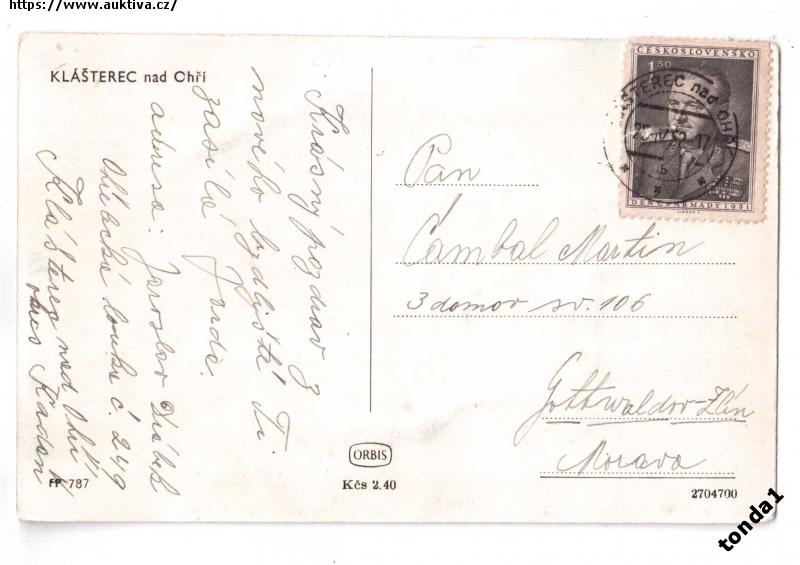 https://www.auktiva.cz/
KLÁŠTEREC nad Ohří
Krásný pozdrav z
nového bydliště Ti
zasílá Jarda.
adresa: Jaroslav
Ohřecká louka č. 249
Klášterec nad Ohří
okres Kadaň
FP 787
ORBIS
Kčs 2.40
ČESKOSLOVENSKO
1,50
DEN ČS. ARMÁDY 1951
KLÁŠTEREC nad OHŘÍ
b
Pan
Čambal Martin
3 domov sv. 106
Gottwaldov-Zlín
Morava
2704700
tonda1